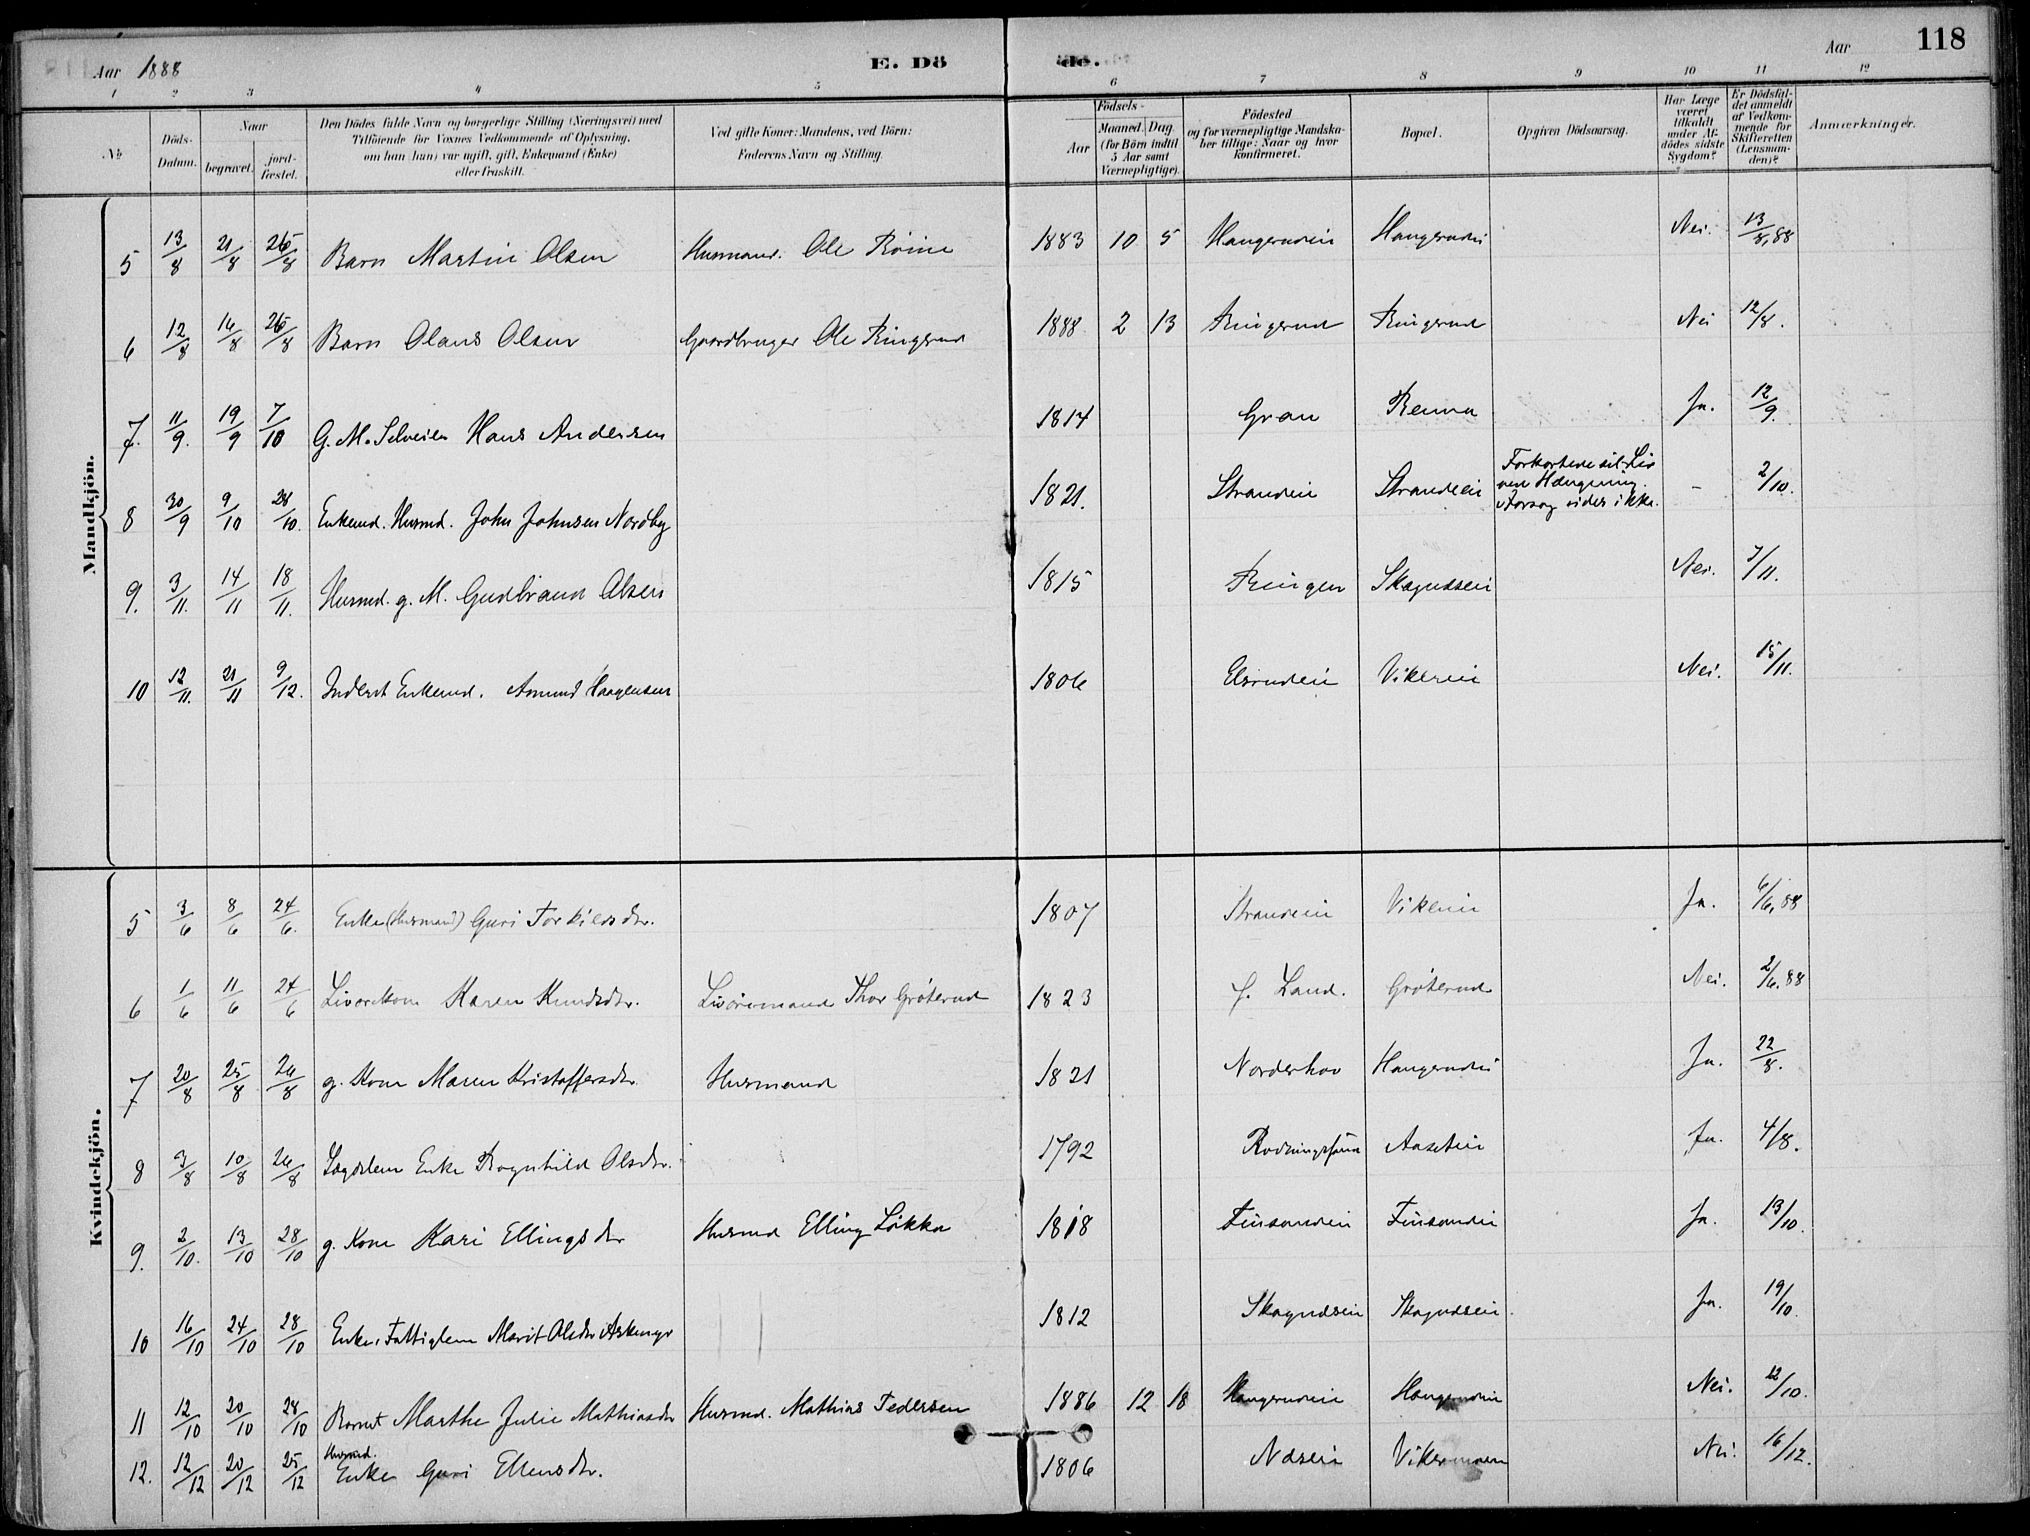 118
Aar 1888
E. Dö de.
Aar
1 2 3 4 5 6 7 8 9 10 11 12
No
Döds-Datum.
Naar
begravet.
jord-fæstet.
Den Dödes fulde Navn og borgerlige Stilling (Næringsvei) med
Tilföiende for Voxnes Vedkommende af Oplysning,
om han (hun) var ugift, gift, Enkemand (Enke)
eller fraskilt.
Ved gifte Koner: Mandens, ved Börn:
Faderens Navn og Stilling.
Födsels-
Aar
Maaned. Dag.
(for Börn indtil
5 Aar samt
Værnepligtige).
Födested
og for værnepligtige Mandska-
ber tillige: Naar og hvor
konfirmeret.
Bopæl.
Opgiven Dödsaarsag.
Har Læge
været
tilkaldt
under Af-
dödes sidste
Sygdom?
Er Dödsfal-
det anmeldt
af Vedkom-
mende for
Skifteretten
(Lensman-
den)?
Anmærkninger.
Mandkjön.
5 13/8 21/8 26/8 Barn Martin Olsen Husmand. Ole 1883 10 5 Haugerudei Haugerudei Nei. 13/8,88
6 12/8 16/8 26/8 Barn Olaus Olsen Gaardbruger Ole Ringerud 1888 2 13 Ringerud Ringerud Nei 12/8.
7. 11/9. 19/9 7/10 G. M. Selveier Hans Andersen 1814 Gran Renna Ja. 12/9.
8 30/9 9/10 28/10. Enkemd. Husmd. John Johnsen Nordby 1821. Strandei Strandeei Forkortede sit Liv
ved Hængning. – 2/10.
Aarsag vides ikke.
9. 3/11. 14/11 18/11. Husmd. g. M. Gudbrand Olsen 1815 Ringen Skagndsei Nei. 7/11.
10 12/11. 21/11 9/12. Inderst Enkemd. Amund Haagensen 1806 Elsrudei Vikerei Nei. 15/11.
Kvindekjön.
5 3/6 8/6 24/6. Enke (Husmand) Guri Torkildsdtr. 1807 Strandeei Vikerei Ja. 6/6,88
6 1/6 11/6 24/6 Livørekone Karen Knudsdtr. Livøremand Thor Grøterud 1823 S. Land. Grøterud Nei. 2/6,88
7 20/8 25/8 26/8 g. Kone Maren Kristoffersdtr. Husmand 1821 Norderhov Haugerudei Ja. 22/8.
8 3/8 10/8 26/8 Lægdslem Enke Ragnhild Olsdtr. 1792 Aasetei Ja. 4/8.
9. 2/10. 13/10 28/10 g. Kone Kari Ellingsdtr Husmd Elling Løkka 1818 Finsandei Finsandei Ja. 13/10.
10 16/10 24/10 28/10 Enke, Fattiglem Marit Olsdtr 1812 Skagndsei Skagndsei. Ja. 19/10.
11 12/10 20/10 28/10 Barnet Marthe Julie Mathiasdtr Husmd. Mathias Pedersen 1886 12 18 Haugerudei Haugerudei Nei. 22/10.
Husmd.
12. 12/12 20/12 25/12 Enke Guri Ellensdtr. 1806 Næsei Vikermoen Nei. 16/12.